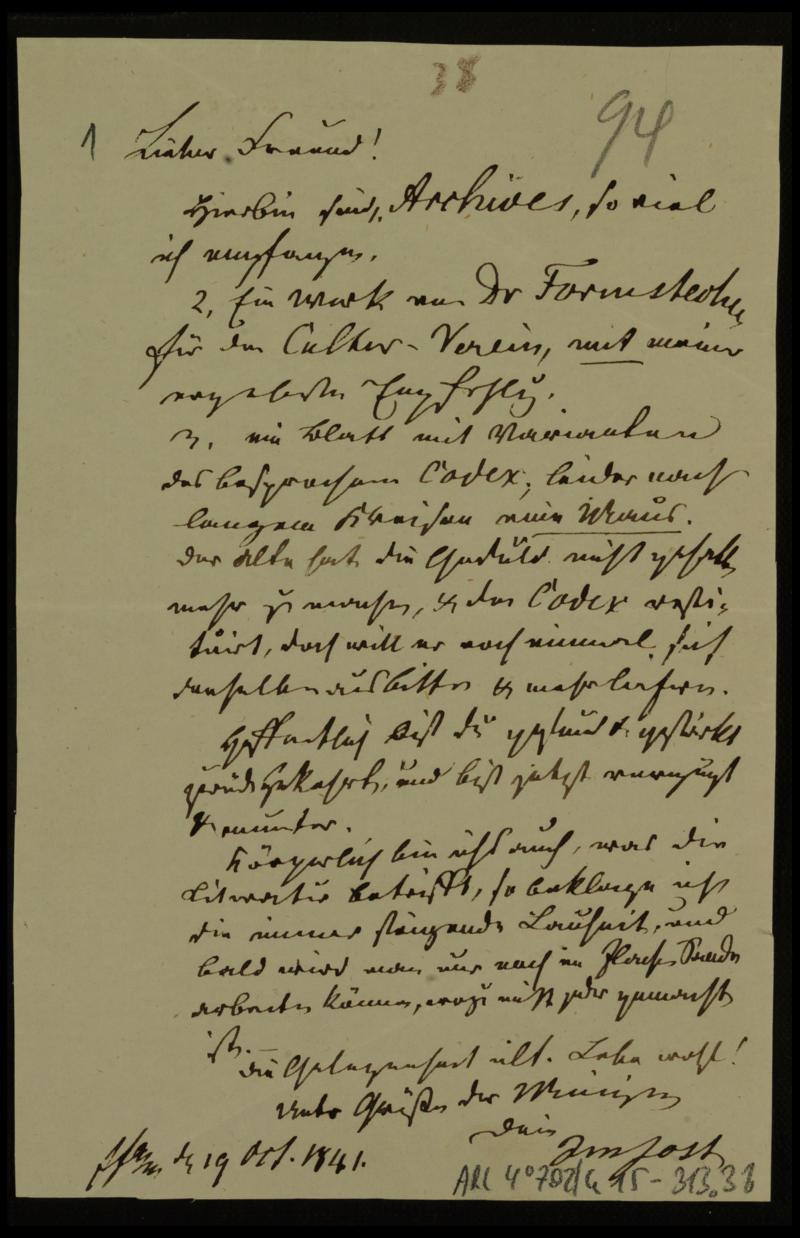 38
94
1 Lieber Freund!
Hierbei sind 1, Archives, so viel
ich empfangen.
2, Ein Werk von Dr Formstecher
für den Cultur-Verein, mit meiner
ergebensten Empfehlg.
3, ein Blatt mit Varianten
des besprochenen Codex; leider nach
langem Kreisen eine Maus.
Der Alte hat die Geduld nicht gehabt
mehr zu machen, & den Codex resti-
tuirt, doch will er noch einmal sich
denselben ausbitten & mehr liefern.
Hoffentlich bist du gesund & gestärkt
zurückgekehrt, und bist jetzt vergnügt
& munter.
Körperlich bin ichs auch, was die
Literatur betrifft, so beklage ich
die immer steigende Lauheit, und
bald wird man nur noch im Sande
arbeiten können, wozu nicht jeder gemacht
ist. –
Die Gelegenheit eilt. Lebe wohl!
Unter Grüßen der Meinigen
Dein
Jost
Ffm d 19 Oct. 1841.
ARC 4° 792/G 15 - 313.38